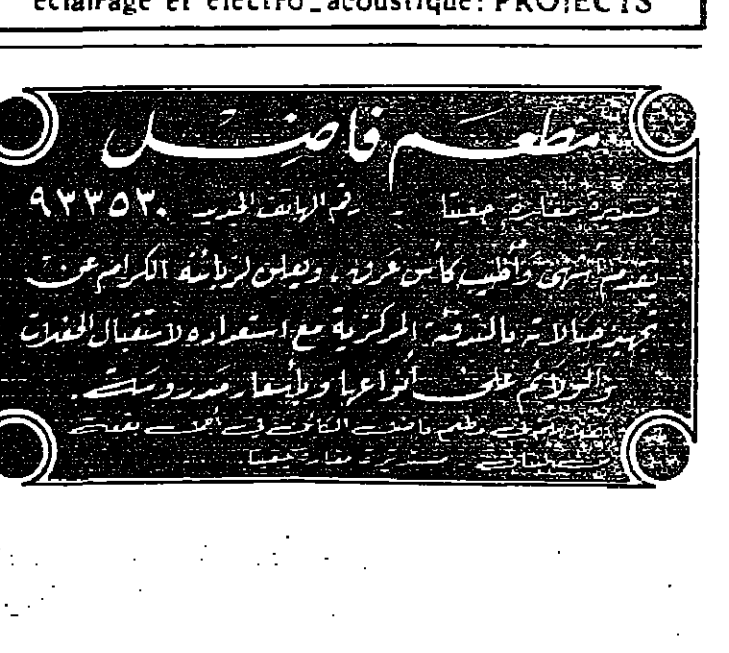 eclairage et electro_acoustique: PROJECTS
مطعم فاضل
مستديرة مغارة جعيتا - رقم الهاتف الجديد ٩٣٣٥٣٠
يقدم أشهى وأطيب كأس عرق ، ويعلن لزبائنه الكرام عن
تجهيز صالاته بالتدفئة المركزية مع استعداده لاستقبال الحفلات
والولائم على أنواعها وبأسعار مدروسة .
مطعم فاضل الكائن في أجمل بقعة
مستديرة مغارة جعيتا